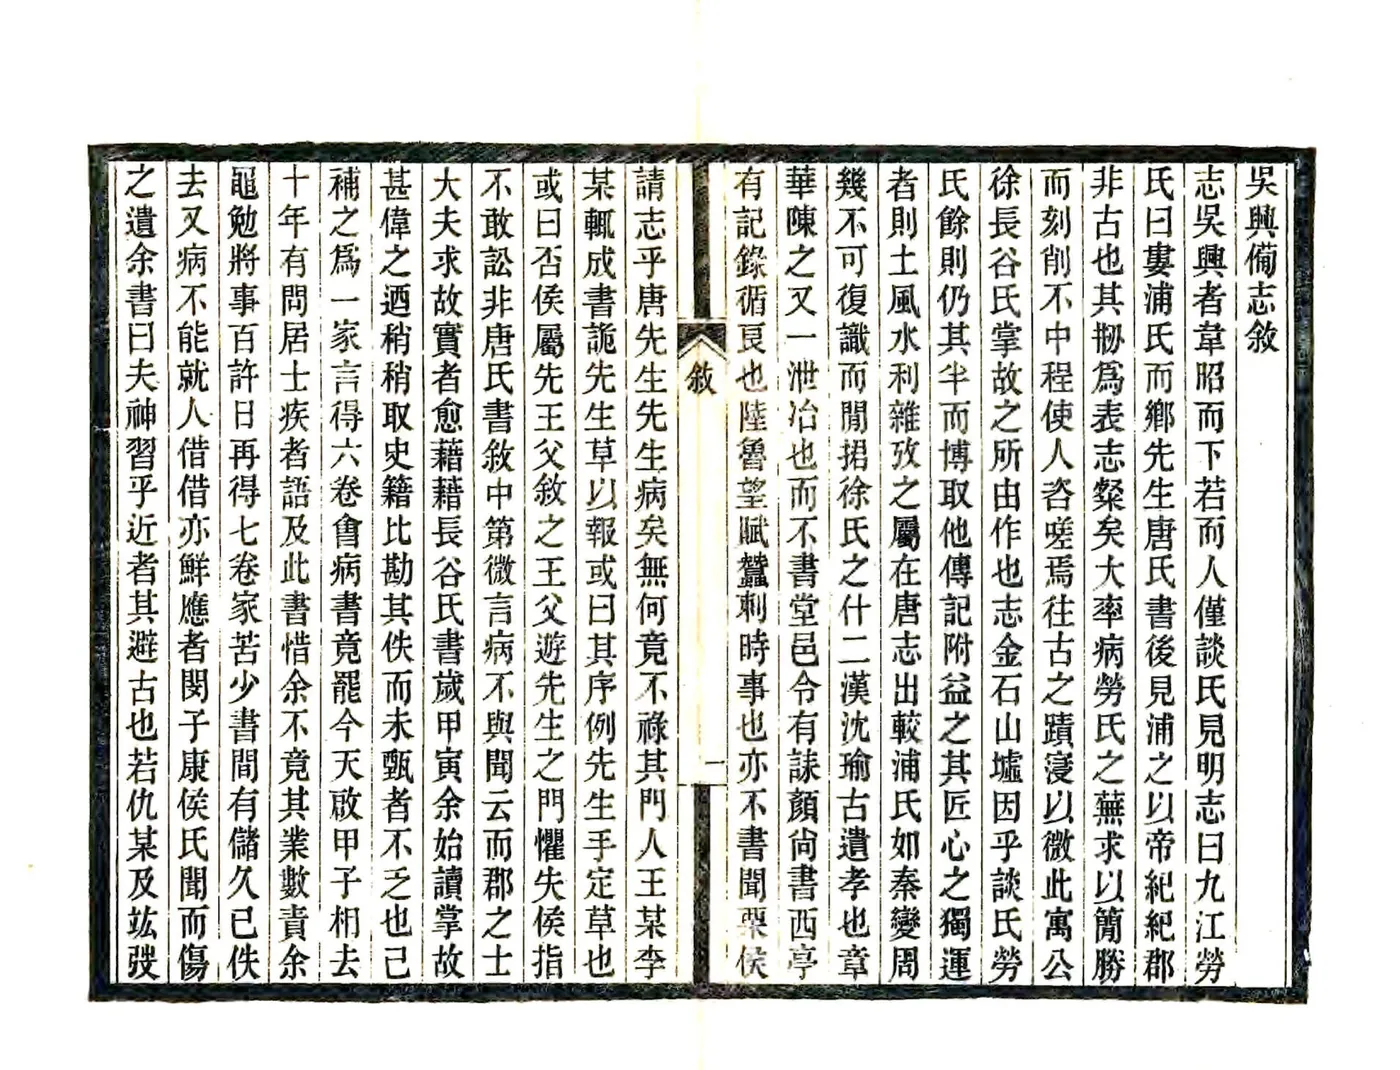 吳興備志敘
志吳興者韋昭而下若而人僅談氏見明志曰九江勞
氏曰婁浦氏而鄉先生唐氏書後見浦之以帝紀紀郡
非古也其剏爲表志粲矣大率病勞氏之蕪求以簡勝
而刻削不中程使人咨嗟焉往古之蹟寖以微此寓公
徐長谷氏掌故之所由作也志金石山墟因乎談氏勞
氏餘則仍其半而博取他傳記附益之其匠心之獨運
者則土風水利雜攷之屬在唐志出較浦氏如秦變周
幾不可復識而閒捃徐氏之什二漢沈瑜古遺孝也章
華陳之又一泄冶也而不書堂邑令有誄顏尙書西亭
有記錄循良也陸魯望賦蠶刺時事也亦不書聞栗侯
請志乎唐先生先生病矣無何竟不祿其門人王某李
某輒成書詭先生草以報或曰其序例先生手定草也
或曰否侯屬先王父敘之王父遊先生之門懼失侯指
不敢訟非唐氏書敘中第微言病不與聞云而郡之士
大夫求故實者愈藉藉長谷氏書歲甲寅余始讀掌故
甚偉之迺稍稍取史籍比勘其佚而未甄者不乏也己
補之爲一家言得六卷會病書竟罷今天啟甲子相去
十年有問居士疾者語及此書惜余不竟其業數責余
黽勉將事百許日再得七卷家苦少書間有儲久已佚
去又病不能就人借借亦鮮應者閔子康侯氏聞而傷
之遺余書曰夫神習乎近者其避古也若仇某及竑弢
敘
一